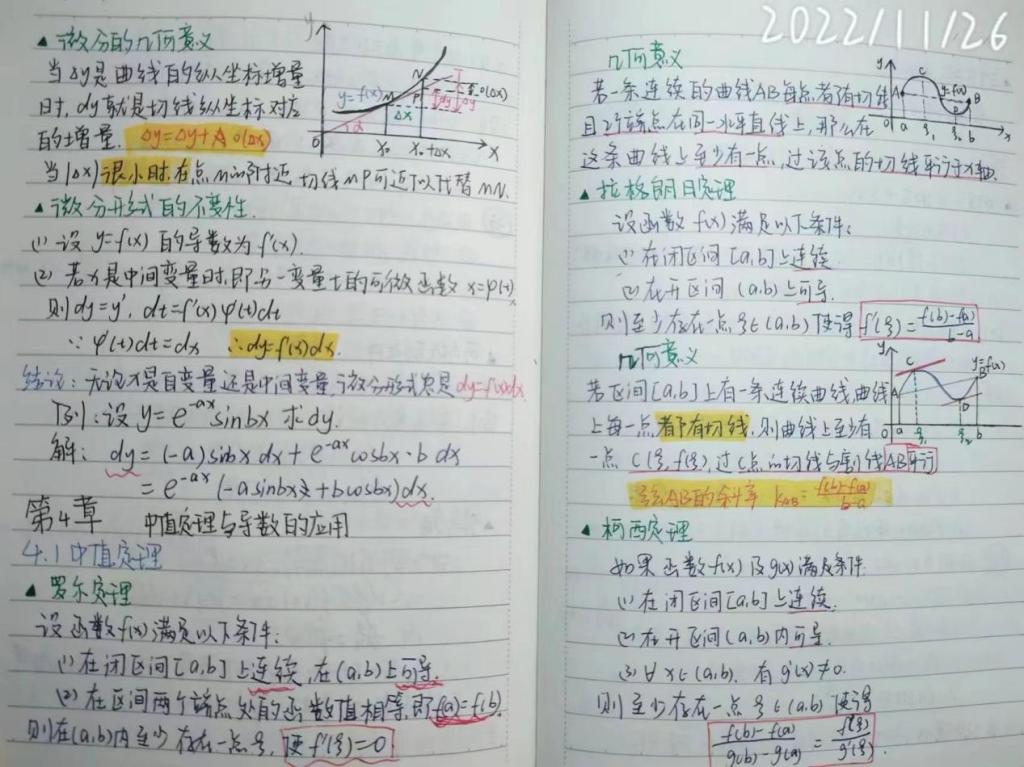 ▲微分的几何意义
当Δy是曲线的纵坐标增量
时,dy就是切线纵坐标对应
的增量. Δy=dy+o(Δx)
当|Δx|很小时,在点M的附近,切线MP可近似代替MN.
▲微分形式的不变性.
(1) 设 y=f(x) 的导数为f'(x).
(2) 若x是中间变量时,即另一变量t的可微函数 x=φ(t)
则dy=y'，dt=f'(x)φ'(t)dt
∵φ'(t)dt=dx ∴dy=f'(x)dx.
结论:无论x是自变量还是中间变量,微分形式总是dy=f'(x)dx
例:设 y=e^{-ax}sinbx 求dy.
解: dy=(-a)sinbx dx + e^{-ax}cosbx·b dx
=e^{-ax}(-asinbx+bcosbx)dx.
第4章 中值定理与导数的应用
4.1中值定理
▲ 罗尔定理
设函数f(x)满足以下条件:
(1)在闭区间[a,b]上连续,在(a,b)上可导.
(2)在区间两个端点处的函数值相等,即f(a)=f(b).
则在(a,b)内至少存在一点ξ,使f'(ξ)=0
y
y=f(x)
N
M
P
o(Δx)
dy
Δy
Δx
α
0
x₀
x₀+Δx
x
2022/11/26
几何意义
若一条连续的曲线AB每点都有切线
且2个端点在同一水平直线上,那么在
这条曲线上至少有一点,过该点的切线平行于x轴.
y
C
y=f(x)
A
B
D
0 a ξ₁ ξ₂ b x
▲拉格朗日定理
设函数 f(x) 满足以下条件:
(1)在闭区间[a,b]上连续
(2)在开区间 (a,b)上可导.
则至少存在一点ξ∈(a,b) 使得 f'(ξ)=\frac{f(b)-f(a)}{b-a}
几何意义
若区间[a,b]上有一条连续曲线,曲线
上每一点都有切线,则曲线上至少有
一点 C(ξ,f(ξ)),过C点的切线与割线AB平行
弦AB的斜率 k_{AB}=\frac{f(b)-f(a)}{b-a}
y
C
y=f(x)
B
A
D
0 a ξ₁ ξ₂ b x
▲柯西定理
如果函数f(x)及g(x)满足条件
(1)在闭区间[a,b]上连续.
(2)在开区间(a,b)内可导.
(3)∀x∈(a,b). 有g'(x)≠0.
则至少存在一点ξ∈(a,b) 使得
\frac{f(b)-f(a)}{g(b)-g(a)}=\frac{f'(ξ)}{g'(ξ)}.